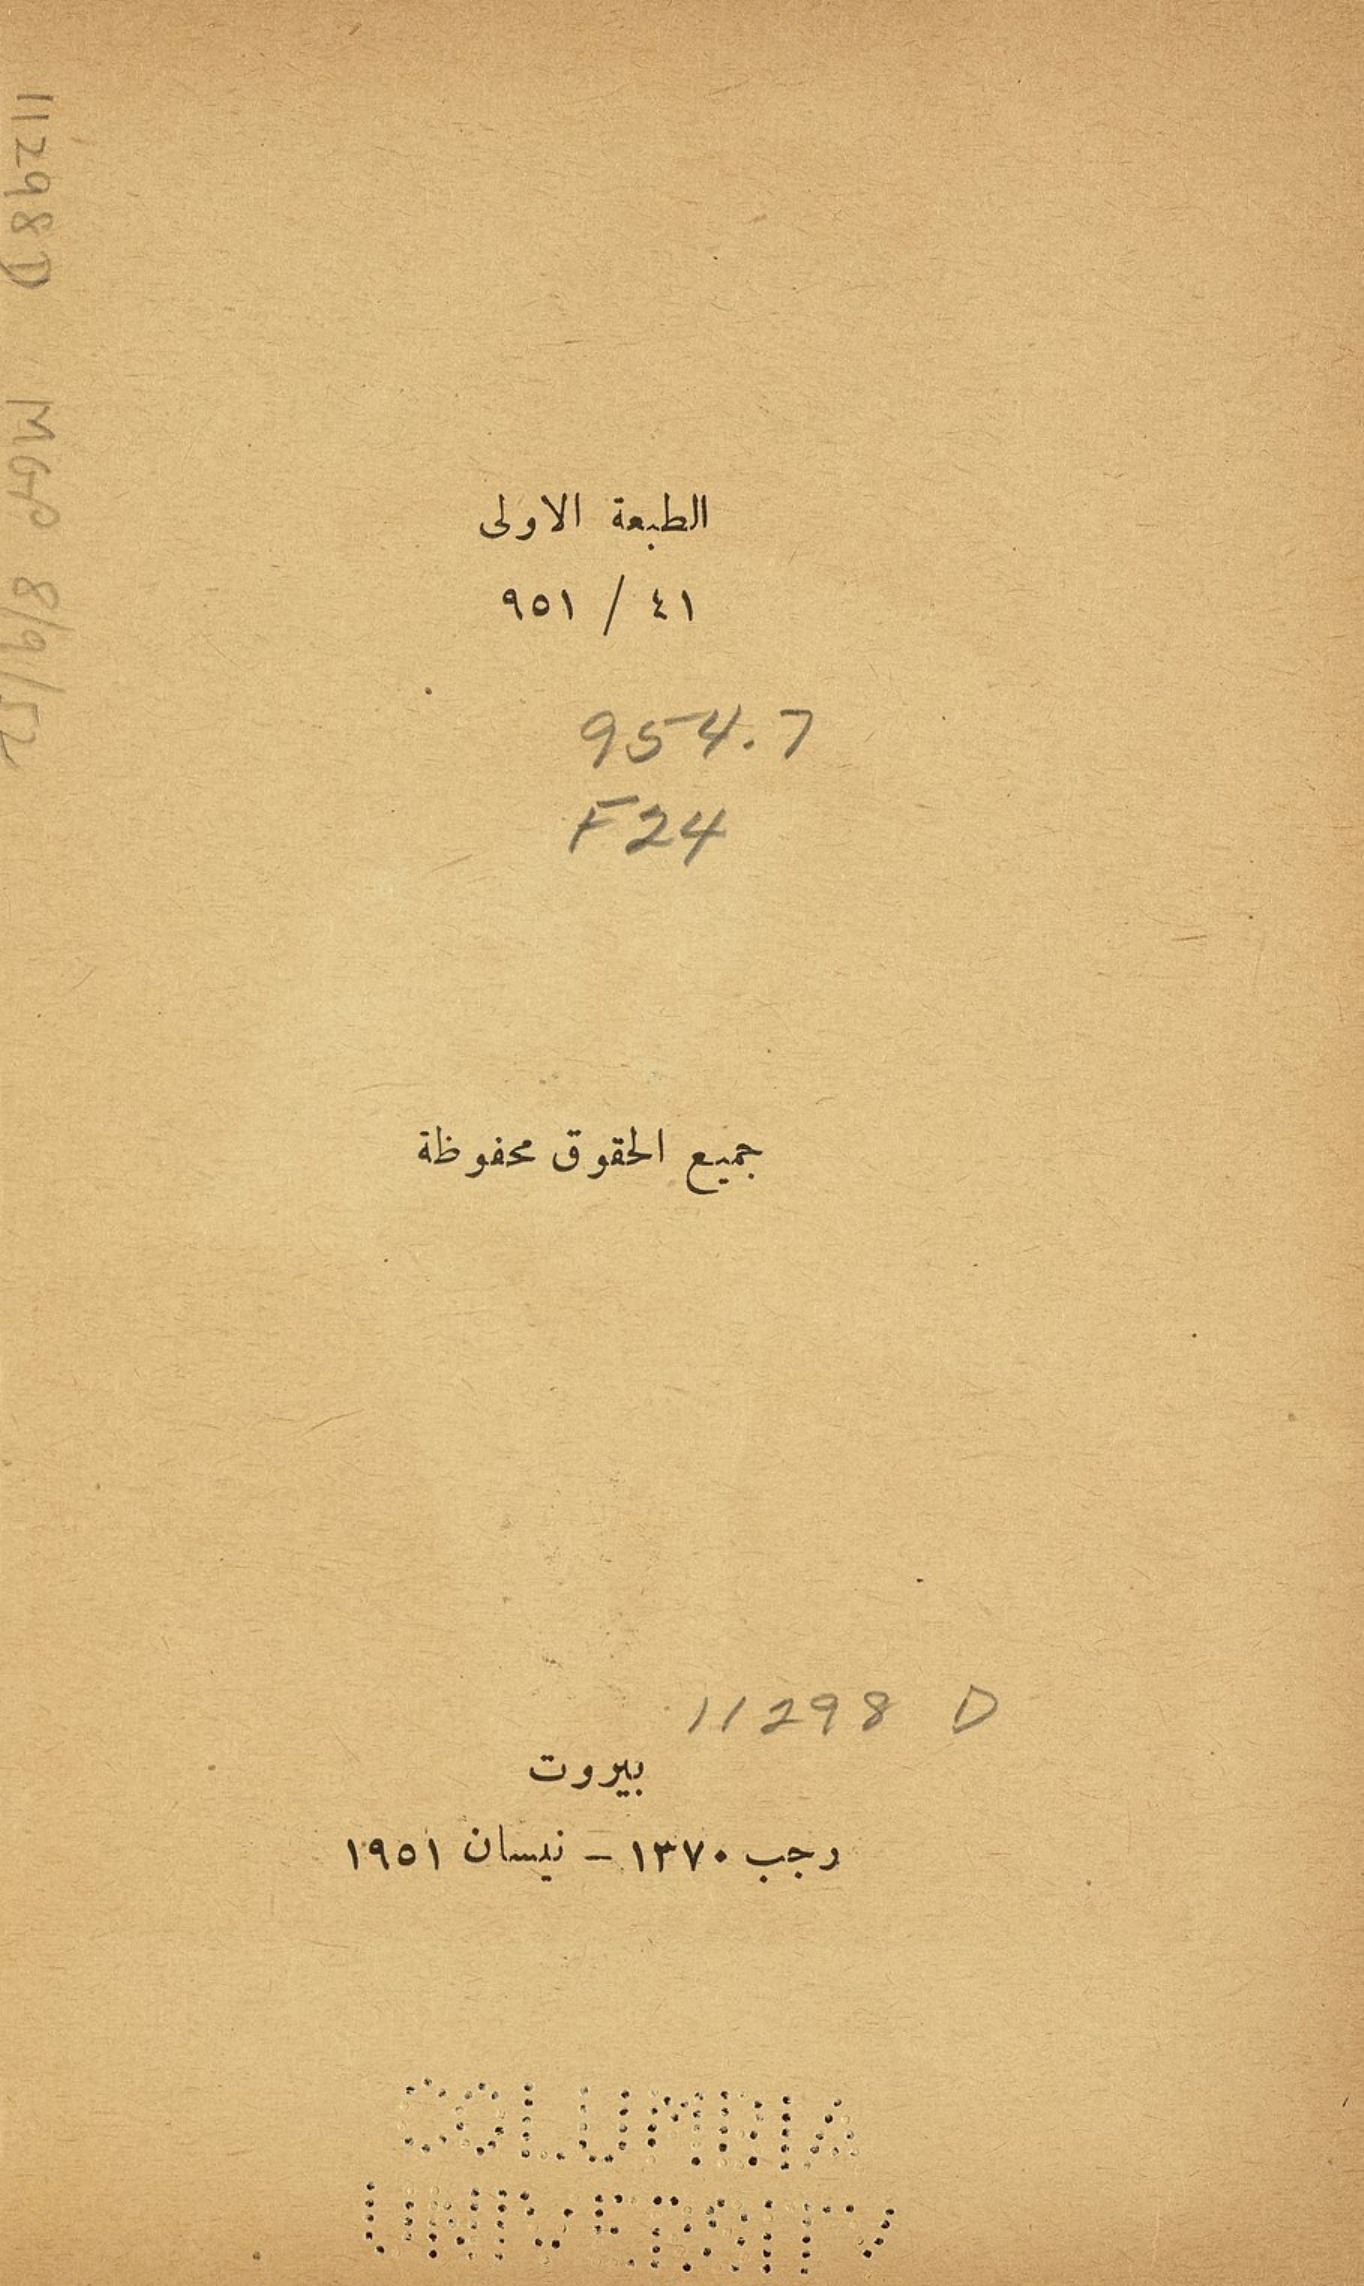 الطبعة الاولى
٤١ / ٩٥١
954.7
F24
جميع الحقوق محفوظة
11298 D
بيروت
رجب ١٣٧٠ - نيسان ١٩٥١
COLUMBIA
UNIVERSITY
11298D MGP 8/9/52